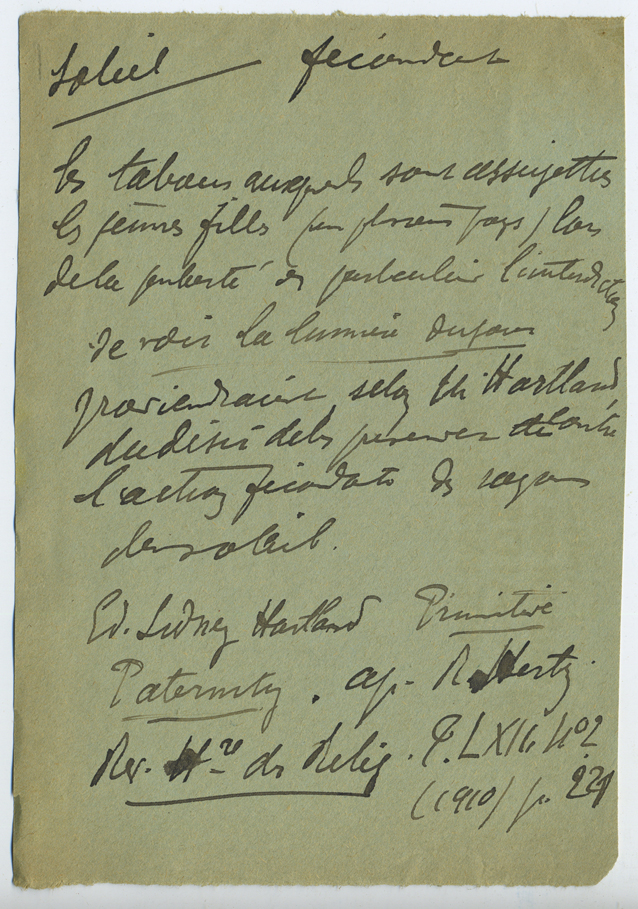 Soleil fécondant
les tabous auxquels sont assujetties
les jeunes filles (en plusieurs pays) lors
de la puberté en particulier l'interdiction
de voir la lumière du jour
proviendraient, selon Mr Hartland,
du désir de les préserver contre
l'action fécondante des rayons
du soleil.
Ed. Sidney Hartland Primitive
Paternity. ap. R. Hertz.
Rev. Hre des Relig. T. LXII, no2
(1910) p.